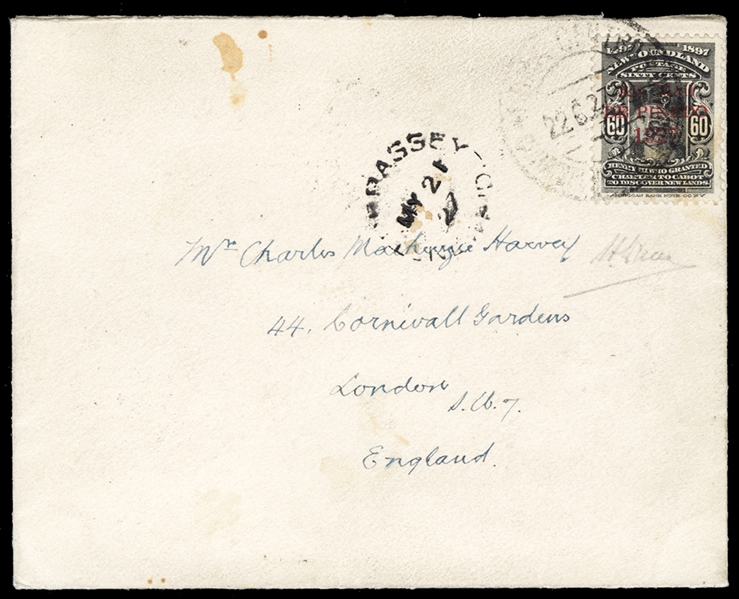 1897 1897
NEWFOUNDLAND
POSTAGE
SIXTY CENTS
60 60
1927
HENRY VII WHO GRANTED
CHARTER TO CABOT
TO DISCOVER NEW LANDS.
22 6 27
TREPASSEY
MY 21
Mr Charles Mackenzie Harvey
44. Cornwall Gardens
London
S.W.7.
England.